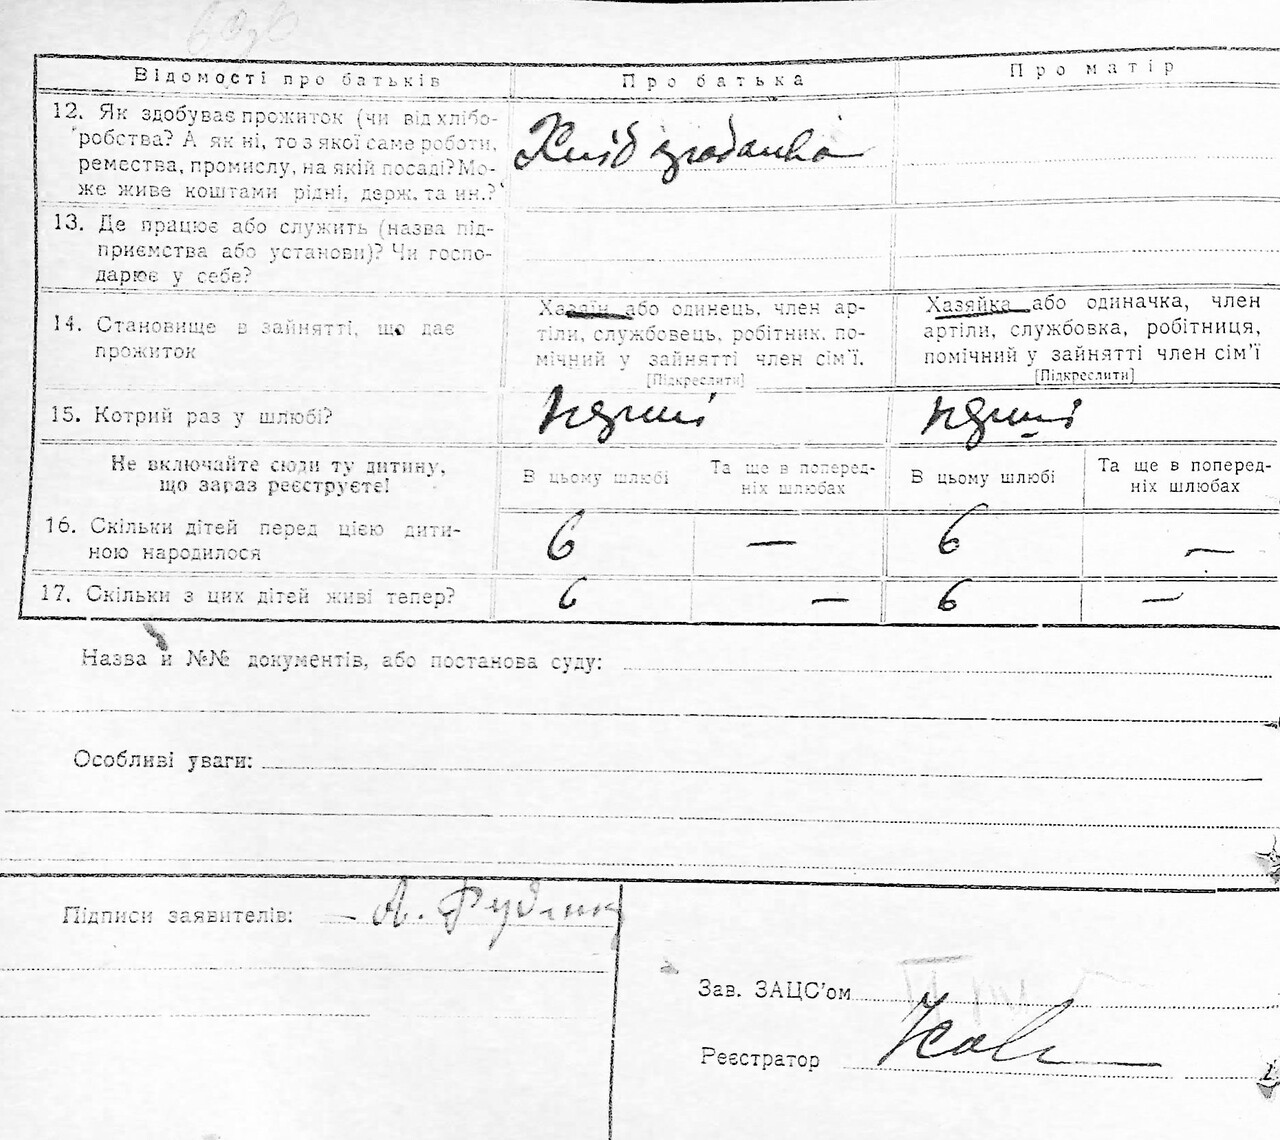 Відомості про батьків
Про батька
Про матір
12. Як здобуває прожиток (чи від хлібо-
робства? А як ні, то з якої саме роботи,
ремества, промислу, на якій посаді? Мо-
же живе коштами рідні, держ. та ин.?
13. Де працює або служить (назва під-
приємства або установи)? Чи госпо-
дарює у себе?
14. Становище в зайнятті, що дає
прожиток
Хазяїн або одинець, член ар-
тіли, службовець, робітник, по-
мічний у зайнятті член сім'ї.
[Підкреслити]
Хазяйка або одиначка, член
артіли, службовка, робітниця,
помічний у зайнятті член сім'ї
[Підкреслити]
15. Котрий раз у шлюбі?
перший
перший
Не включайте сюди ту дитину,
що зараз реєструєте!
В цьому шлюбі
Та ще в поперед-
ніх шлюбах
В цьому шлюбі
Та ще в поперед-
ніх шлюбах
16. Скільки дітей перед цією дити-
ною народилося
6
—
6
—
17. Скільки з цих дітей живі тепер?
6
—
6
—
Назва й №№ документів, або постанова суду:
Особливі уваги:
Підписи заявителів:
— А.
Зав. ЗАЦС'ом
Реєстратор